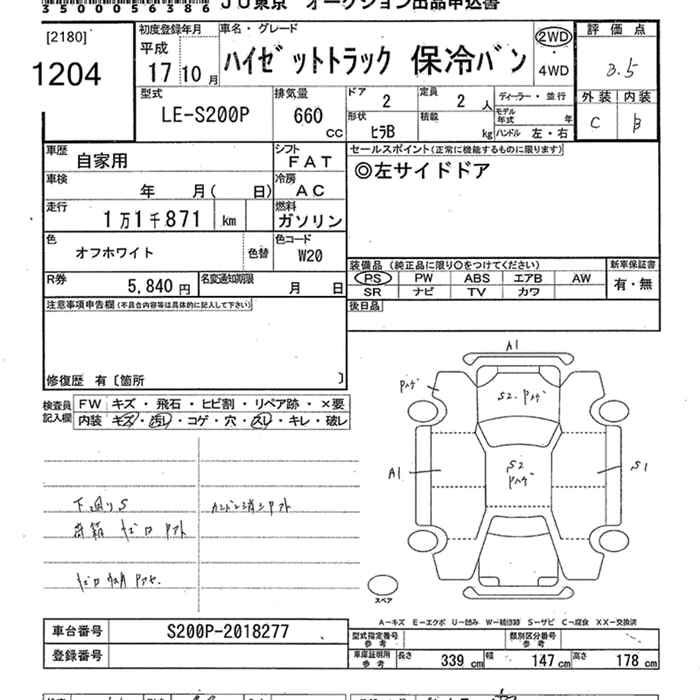 3500056386 JU東京 オークション出品申込書
[2180]
1204
初度登録年月
平成
17年10月
車名・グレード
ハイゼットトラック 保冷バン
2WD
・
4WD
評価点
3.5
外装 内装
C B
型式
LE-S200P
排気量
660
CC
ドア 2
定員 2 人
形状 ヒラB
積載 kg
ディーラー・並行
モデル年式 年
ハンドル 左・右
車歴 自家用
シフト FAT
車検 年 月( 日)
冷房 AC
走行 1万1千871 km
燃料 ガソリン
色 オフホワイト
色替
色コード W20
R券 5,840円
名変通知期限 月 日
セールスポイント(正常に機能するものに限ります)
◎左サイドドア
装備品 (純正品に限り○をつけてください)
新車保証書
PS PW ABS エアB AW
SR ナビ TV カワ
有・無
後日品
注意事項申告欄(不具合内容等は具体的に記入して下さい)
修復歴 有〔箇所 〕
検査員記入欄
FW キズ・飛石・ヒビ割・リペア跡・×要
内装 キズ・汚レ・コゲ・穴・スレ・キレ・破レ
下廻りS
A1
S2
A1
S2
S1
スペア
A―キズ E―エクボ U―凹み W―補修跡 S―サビ C―腐食 XX―交換済
車台番号 S200P-2018277
登録番号
型式指定番号 参考
類別区分番号 参考
車庫証明用 参考
長さ 339cm 幅 147cm 高さ 178cm